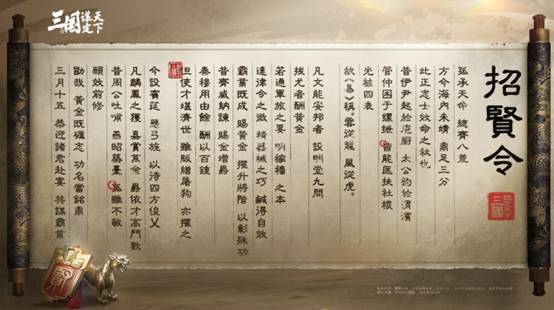 三國謀定天下
招賢令
孤承天命 總齊八荒
方今海內未靖 鼎足三分
此正志士效命之秋也
昔伊尹起於庖廚 太公釣於渭濱
管仲困于縲絏 皆能匡扶社稷
光被四表
故《易》稱 雲從龍 風從虎
凡文能安邦者 設明堂九問
拔尤者酬黃金
若通軍旅之要 明稼穡之本
達津令之微 精器械之巧 鹹得自效
霸業既成 賜黃金 擢升將階 以彰殊功
昔齊威納諫 賜金增爵
秦穆用由餘 酬以百鎰
但使才堪濟世 雖販繒屠狗 亦擢之
今設賓莚 懸弓旌 以待四方俊乂
凡麟鳳之獲 嘉賞萬金 爵依才高門敷
昔周公吐哺 燕昭築臺 孤雖不敏
願效前修
勖哉 黃金既礎志 功名當銘鼎
三月十五 恭迎諸君赴宴 共謀霸業
賢